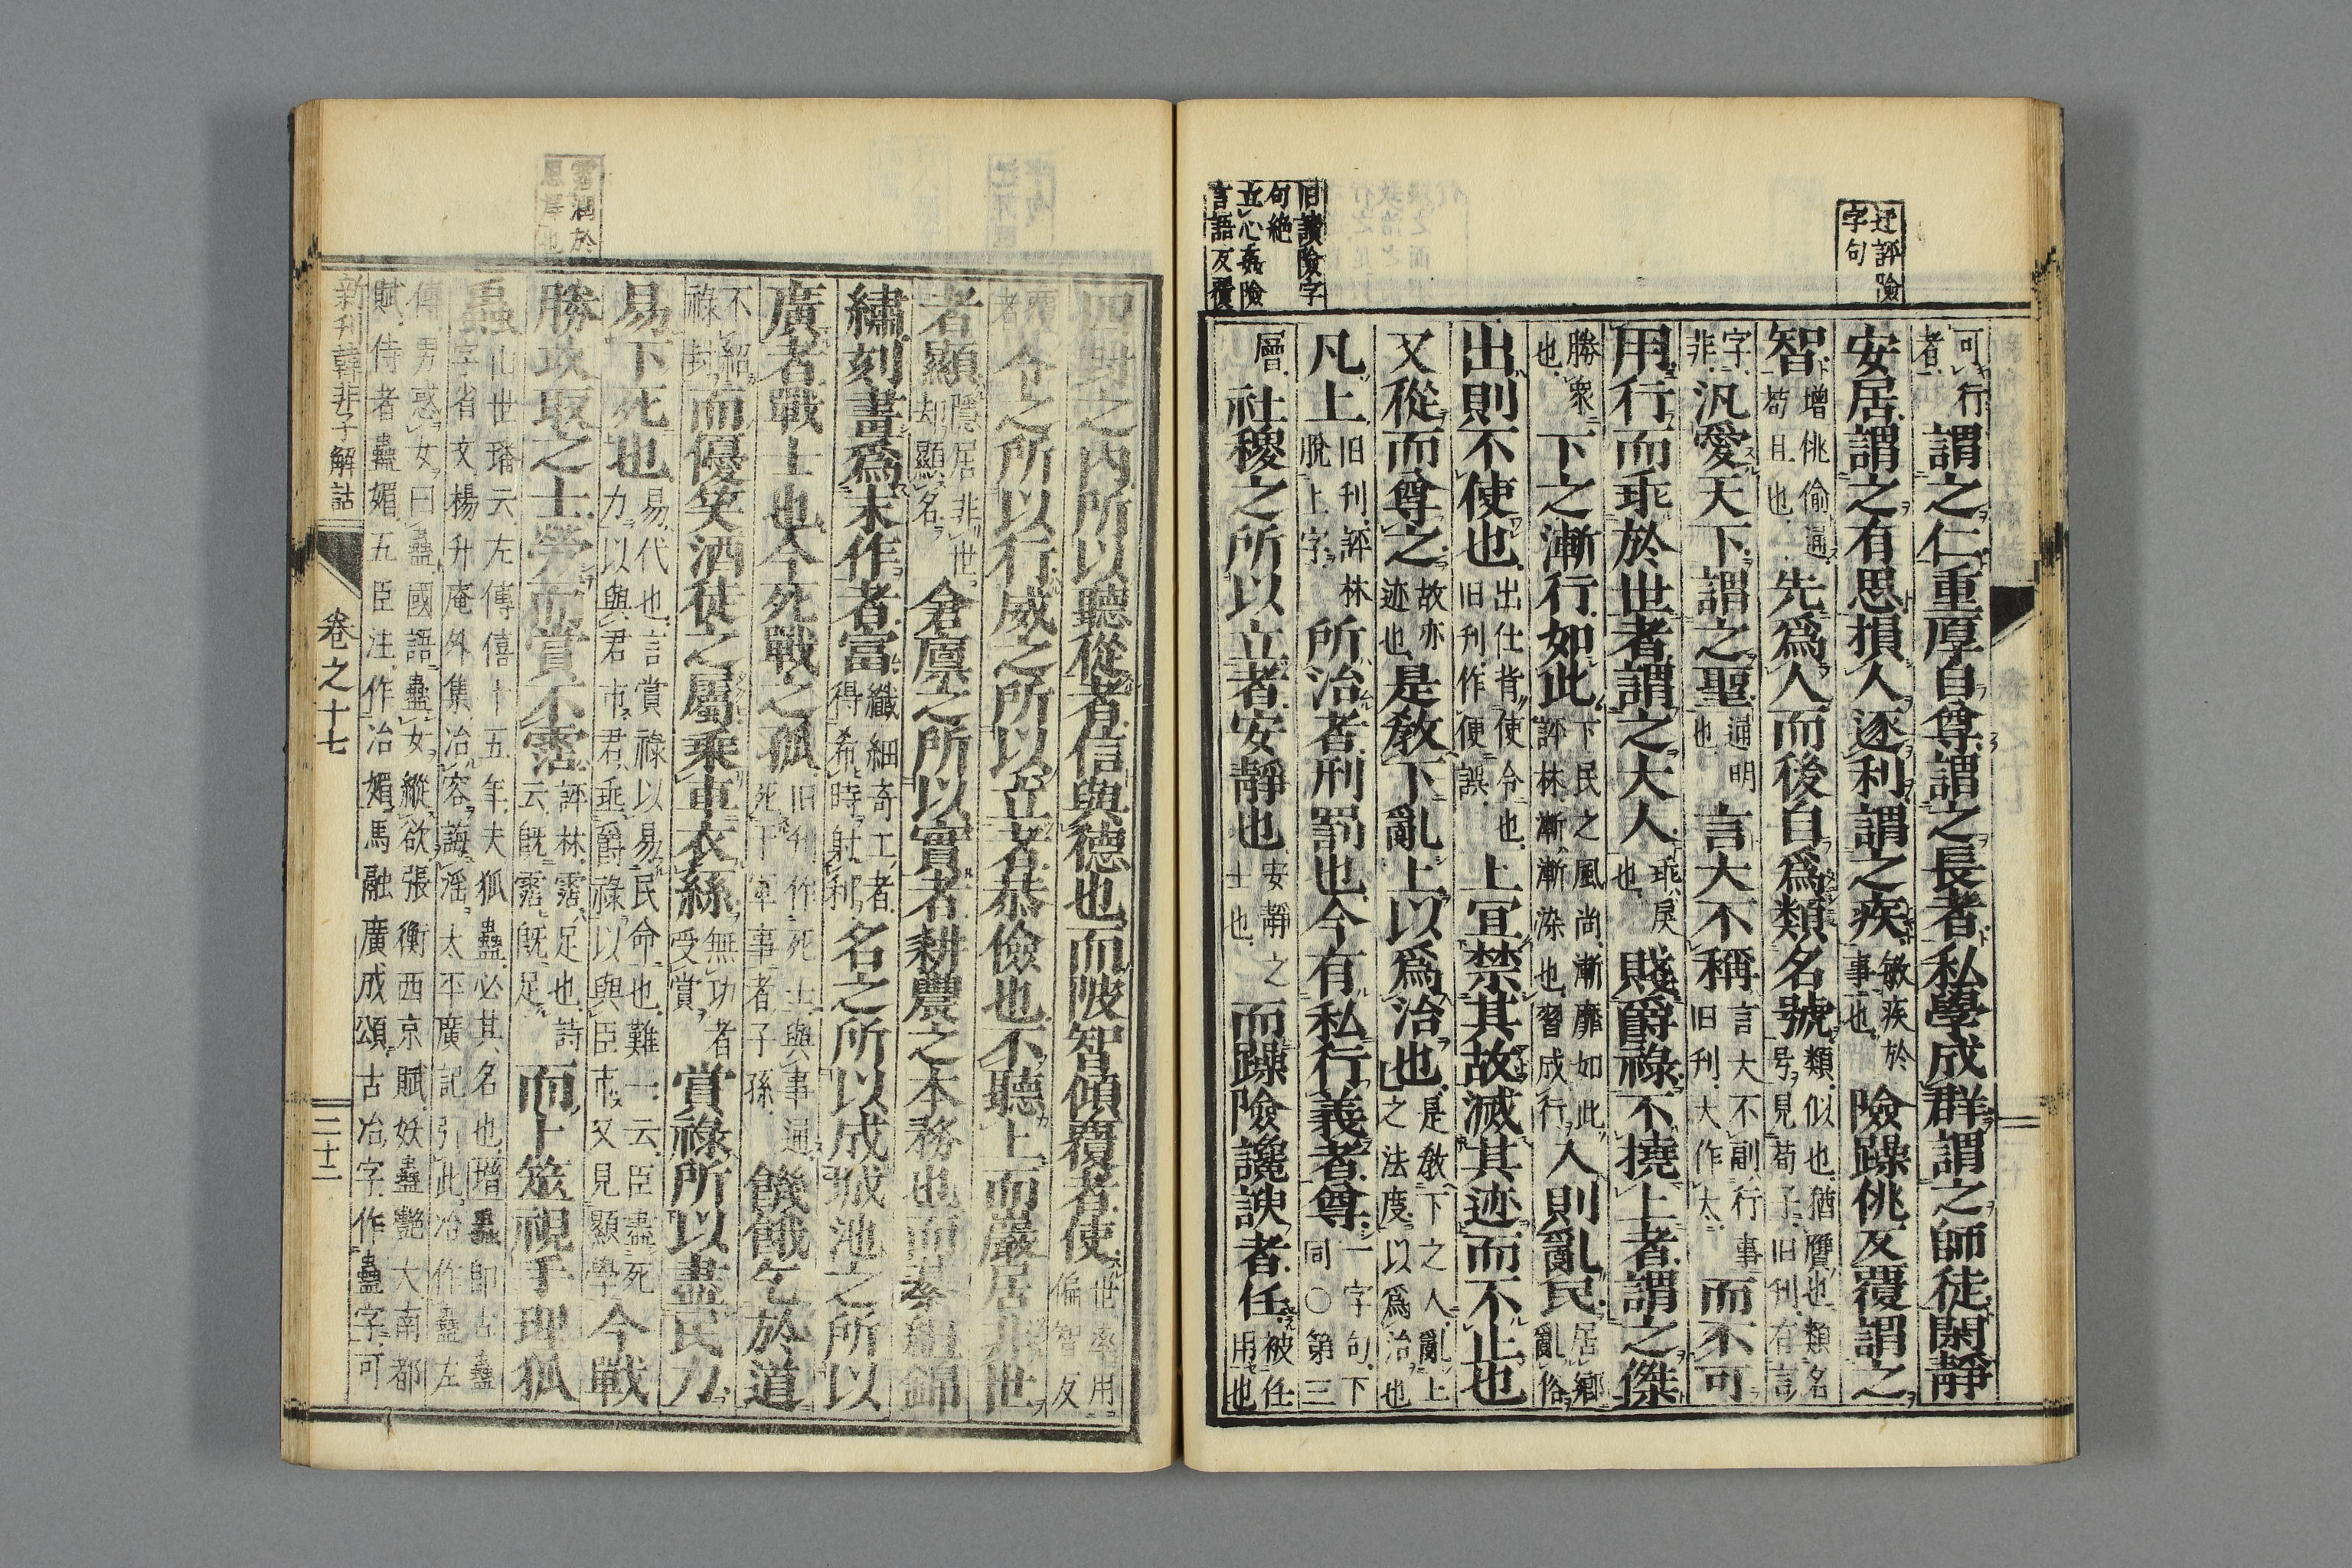 迂評險
字句
旧讀險字
句絶
立心姦險
言語反覆
可行者謂之仁重厚自尊謂之長者私學成群謂之師徒閑靜
安居謂之有思損人逐利謂之疾敏疾於事也險躁佻反覆謂之
智增佻偷通苟且也先爲人而後自爲類名號類似也猶贋也類名号見荀子旧刊有言
字非汎愛天下謂之聖通明也言大不稱言大不副行事旧刊大作太而不可
用行而乖於世者謂之大人乖戾也賤爵祿不撓上者謂之傑
勝衆也下之漸行如此下民之風尚漸靡如此評林漸漸染也習成行入則亂民居鄉亂俗
出則不使也出仕背使令也旧刊作便誤上宜禁其故滅其迹而不止也
又從而尊之故亦迹也是敎下亂上以爲治也是敎下之人亂上之法度以爲治也
凡上旧刊評林脫上字所治者刑罰也今有私行義者尊一字句下同○第三
層社稷之所以立者安靜也安靜之士也而躁險讒諛者任被任用也
四封之内所以聽從者信與德也而陂智傾覆者使世率用偏智反
覆者令之所以行威之所以立者恭儉也不聽上而巖居非世
者顯隱居非世却顯名倉廩之所以實者耕農之本務也而綦組錦
繡刻畫爲末作者富纖細奇工者得希時射利名之所以成城池之所以
廣者戰士也今死戰之孤旧刊作死士與事通死下軍事者子孫饑餓乞於道
不紹祿封而優笑酒徒之屬乘車衣絲無功者受賞賞祿所以盡民力
易下死也易代也言賞祿以易民命也難一云臣盡死力以與君市君乖爵祿以與臣市又見顯學今戰
勝攻取之士勞而賞不霑評林霑足也詩云旣霑旣足而卜筮視手理狐
蟲仙世璠云左傳僖十五年夫狐蠱必其名也增蟲卽古蠱字省文楊升庵外集冶容誨淫太平廣記引此冶作蠱左
傳男惑女曰蠱國語蠱女縱欲張衡西京賦妖蠱艷夫南都
賦侍者蠱媚五臣注作冶媚馬融廣成頌古冶字作蠱字可
新刊韓非子解詁
卷之十七
二十二
霑潤於
恩澤也